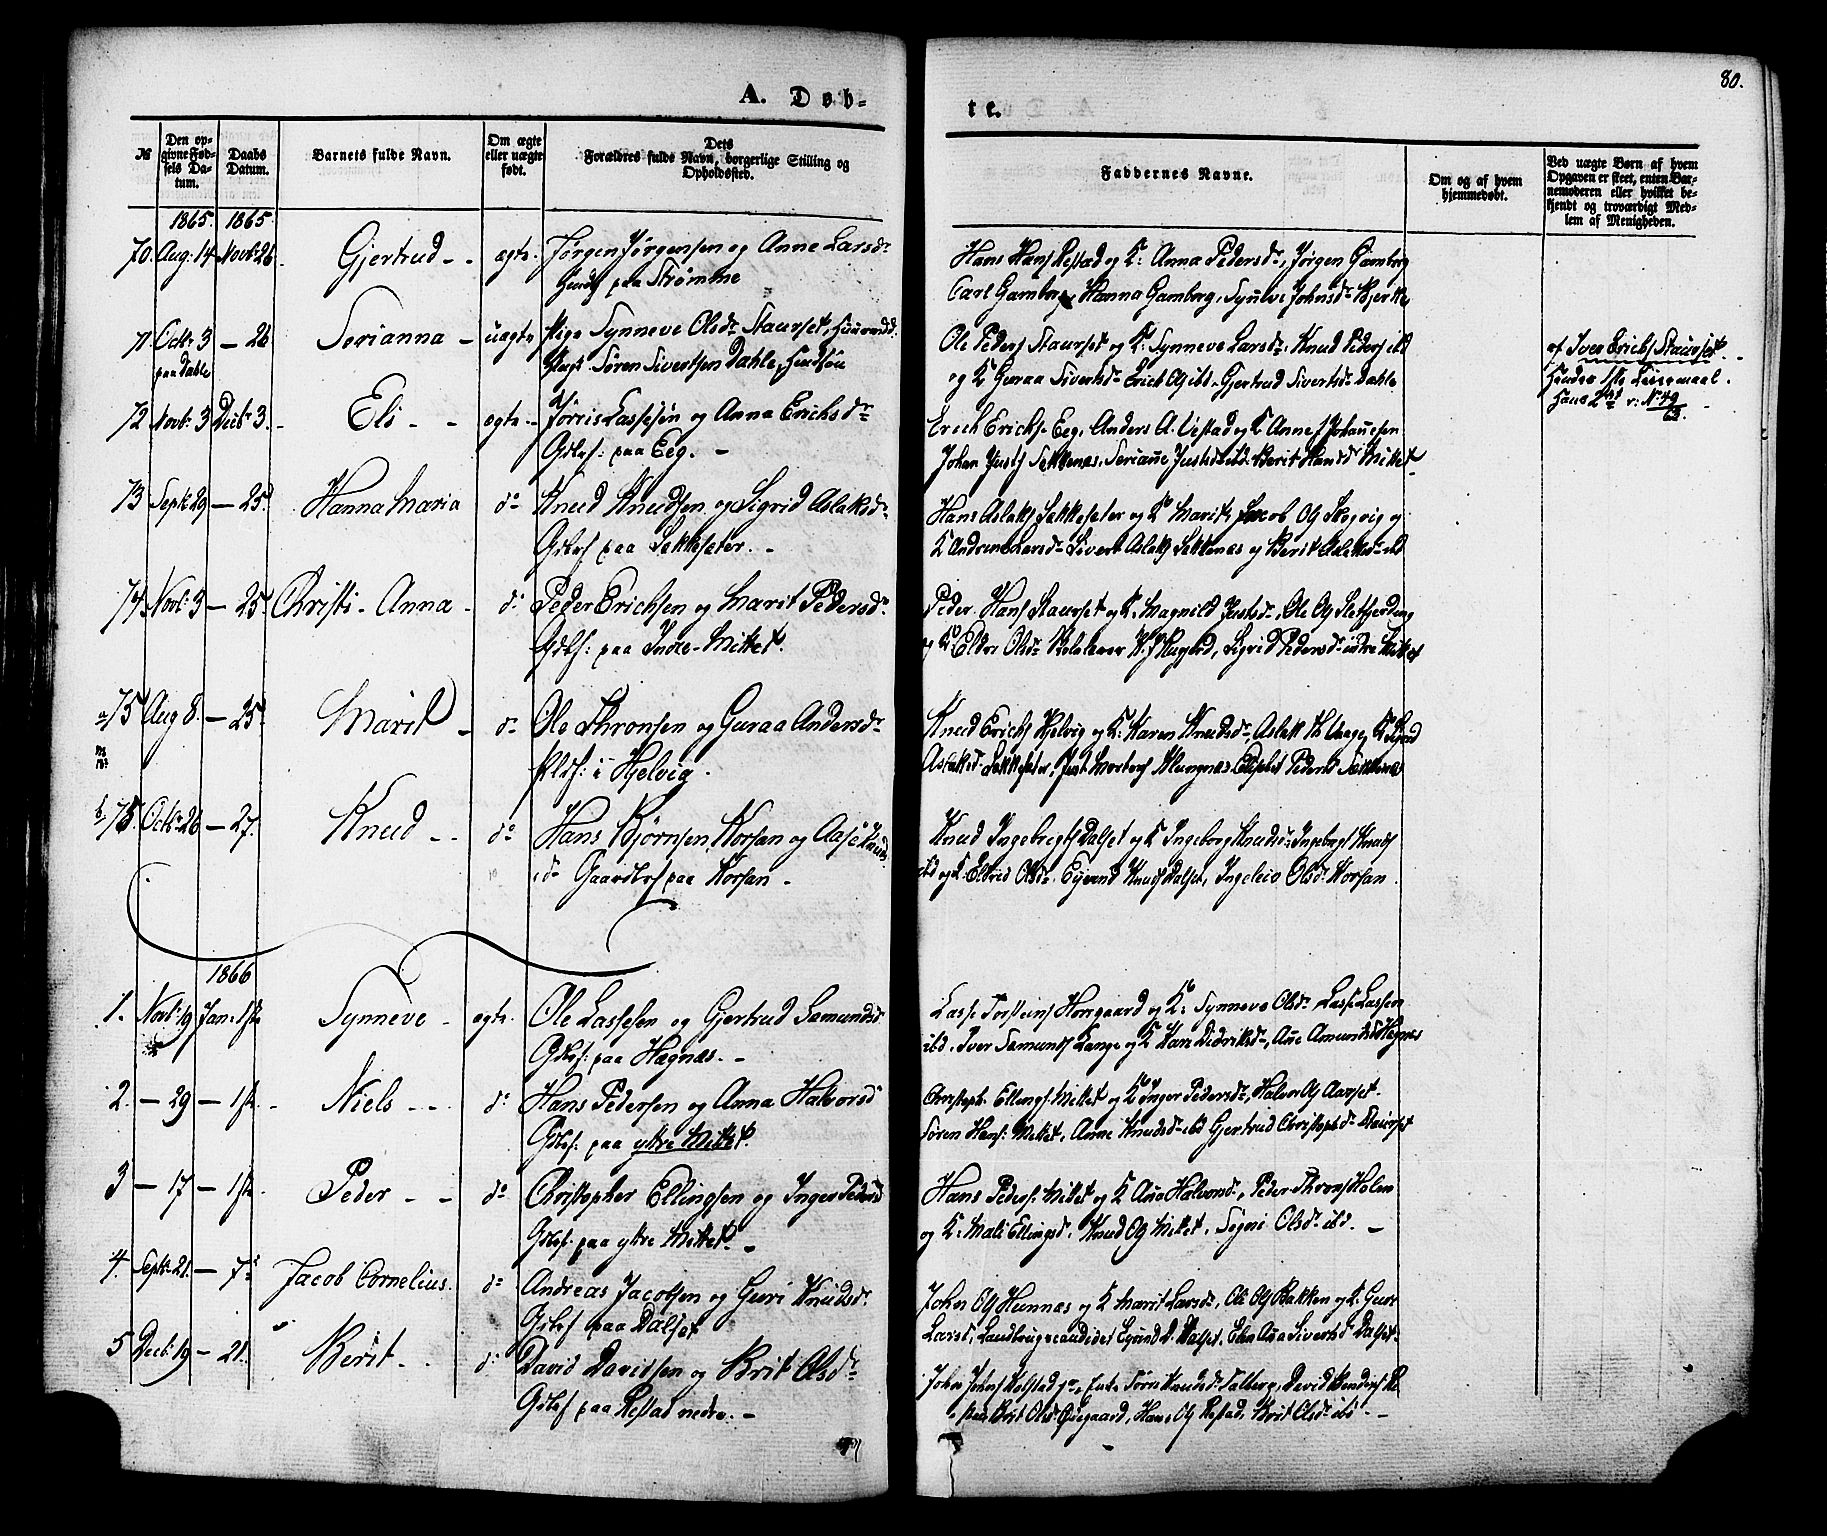 80.
A. Døb-
te.
№
Den opgivne Fødsels Datum.
Daabs Datum.
Barnets fulde Navn.
Om ægte eller uægte født.
Dets Forældres fulde Navn, borgerlige Stilling og Opholdssted.
Faddernes Navne.
Om og af hvem hjemmedøbt.
Ved uægte Børn af hvem Opgaven er skeet, enten Barnemoderen eller hvilket bekjendt og troværdigt Medlem af Menigheden.
1865. 1865.
70. Aug: 14 Novb: 26 Gjertrud - - ægte. Jørgen Jørgensen og Anne Larsdr
paa Strømme
Hans Hans Restad og K: Anna Pedersdr, Jørgen Gamborg
Carl Gamborg, Hanna Gamborg, Synneve Johnsdr Bjerke
71. Octbr 3 - 26 Serianna - uægte Pige Synneve Olsdr Staurset,
paa Dahle
Søren Sivertsen Dahle,
Ole Peders Staurset og K: Synneve Larsdr. Knud Peders ibd
og K Guraa Sivertsdr Erick Ols ibd. Gjertrud Sivertsdr Dahle
af Iver Erichs Staurset.
Hendes 1ste Leiermaal.
Hans 2det v: № 49/63.
72 Novb: 3 Decbr 3. - Eli - - ægte - Jørris Lassesen og Anna Ericksdr
Gdbrf: paa Eeg. -
Erich Ericks. Eeg, Anders A. Vestad og K Anne J Johannesen
Johan Justs Sekkenæs, Serianne Justsdr ibd. Berit Hansdr Mittet
73 Septbr 29 - 25d Hanna Maria do Knud Knudsen og Sigrid Aslaksdr
Gdbrf paa Sekkesæter. -
Hans Aslaks Sekkesæter og K Marit, Jacob Ols Skogvig og
K Andrine Larsdr Sivert Aslaks Sekkenæs og Berit Aslaksdr ibd
74. Novb: 3 - 25d Christi - Anna - do Peder Erichsen og Marit Pedersdr
Gdbf: paa Indre-Mittet.
Peder Hans Staurset og K. Magnild Justsdr, Ole Ols Sletfjerding
og K Eldri Olsdr Kirkelærer K. J Nygaard, Sigrid Pedersdr indre Mittet
a 75 Aug 8. - 25d Marit - do Ole Thronsen og Guraa Andersdr
Pldsf: i Hjelvig.
Knud Ericks Hjelvig og K: Karen Knudsdr, Aslak Th Vaage, K Sigrid
Aslaksd. Sekkesæter, Just Mortens Klungnæs Elisabet Pedersdr Sekkenæs
b 75. Octbr 26 - 27. Knud - - do Hans Bjørnsen Korsan og Aase Knuds
dr Gaardbrf paa Korsan -
Knud Ingebregts Dalset og K Ingeborg Knudsdr Ingebregt Knuds
ibd og K. Eldrid Olsdr. Eyvind Knuds Dalset, Ingeleiv Olsdr Korsan.
1866
1. Novb: 19 Jan: 1ste Synneve - ægte. Ole Lassesen og Gjertrud Samundsd
Gdbrf: paa Hægnæs. -
Lasse Torsteins Horsgaard og K: Synneve Olsdr. Lasse Lassen
ibd. Iver Samunds Lange og K Kari Didriksdr, Ane Amundsdr Hægnæs
2. - 29 - 1ste - Niels - - - do Hans Pedersen og Anna Halvorsd
Gdbrf: paa yttre Mittet.
Christoph. Ellings Mittet og K Inger Pedersdr, Halvor Ols Aarset.
Søren Hans: Mittet, Anne Knudsdr ibd Gjertrud Christophsdr Staurset
3 - 17 - 1ste. Peder - - do Christopher Ellingsen og Inger Pedersd
Gdbrf: paa yttre Mittet. -
Hans Peders: Mittet og K Ane Halvorsdr, Peder Throns Holm
og K: Mali Ellingsd. Knud Ols Mittet. Signi Olsdr ibd. -
4. Septbr 21. - 7de Jacob Cornelius. do Andreas Jacobsen og Guri Knudsdr
Gdbrf paa Dalset
John Ols Hunnæs og K Marit Larsdr, Ole Ols Bakken og K: Guri
Larsd, Landbrugscandidat Eyvind K. Dalset. Elen Ane Sivertsd Dalset.
5 Decbr 19 - 21. Berit - - do David Davidsen og Brit Olsdr
Gdbrf paa Restad nedre. -
John Johns Holstad jr, Enke Sørri Knudsdr Talberg, David Bendix
Brit Olsdr Øvregaard, Hans Ols Restad, Brit Olsdr ibd. -